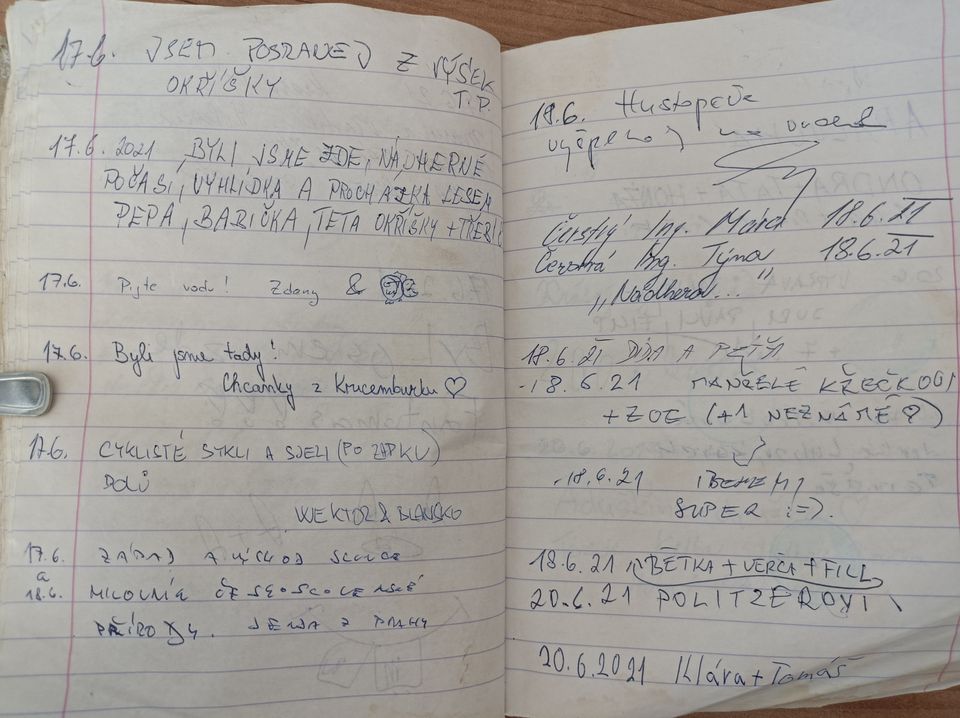 17.6. JSEM POSRANEJ Z VÝŠEK
OKŘÍŠKY T.P.
17.6.2021 BYLI JSME ZDE, NÁDHERNÉ
POČASÍ, VYHLÍDKA A PROCHAZKA LESEM
PEPA, BABIČKA, TETA OKŘÍŠKY + TŘEBÍČ
17.6. Pijte vodu! Zdany &
17.6. Byli jsme tady!
Chcanky z Krucemburku ♡
17.6. CYKLISTÉ SYKLI A SJELI (PO ZADKU)
DOLŮ
WEKTOR & BLANSKO
17.6. ZÁPAD A VÝCHOD SLUNCE
a
18.6. MILOVNÍK ČESKOSLOVENSKÉ
PŘÍRODY. Z PRAHY
18.6. Hustopeče
Čerstvý Ing. Matěj 18.6.21
Čerstvá Ing. Týna 18.6.21
„Nádhera..."
18.6.21 DÍĎA A PÉŤA
18.6.21 MANŽELÉ KŘEČKOVI
+ ZOE (+1 NEZNÁMÉ ?)
18.6.21
SUPER :=).
18.6.21 BĚTKA + VERČA + FILL
20.6.21 POLITZEROVI
20.6.2021 Klára + Tomáš